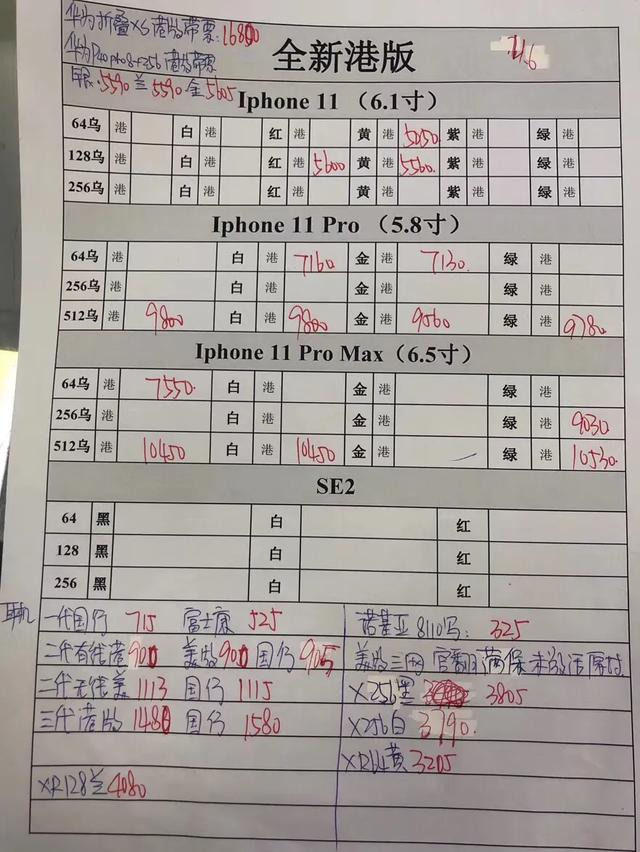 华为折叠XS港版带票:16800
华为P40pro8+256港版带票
全新港版
银:5590 兰5590 金5605
Iphone 11 （6.1寸）
64乌 港 白 港 红 港 黄 港 5050 紫 港 绿 港
128乌 港 白 港 红 港 5600 黄 港 5560 紫 港 绿 港
256乌 港 白 港 红 港 黄 港 紫 港 绿 港
Iphone 11 Pro （5.8寸）
64乌 港 白 港 7160 金 港 7130 绿 港
256乌 港 白 港 金 港 绿 港
512乌 港 9800 白 港 9800 金 港 9560 绿 港 9780
Iphone 11 Pro Max（6.5寸）
64乌 港 7550 白 港 金 港 绿 港
256乌 港 白 港 金 港 绿 港 9030
512乌 港 10450 白 港 10450 金 港 绿 港 10530
SE2
64 黑 白 红
128 黑 白 红
256 黑 白 红
耳机 一代国行 715 富士康 525 诺基亚 8110写: 325
二代有线港 900 美版 900 国行 905 美版三网 官翻 满保 未激活
二代无线美 1113 国行 1115 X256黑 3805
三代港版 1480 国行 1580 X256白 3790
XR64黄 3205
XR128兰 4080